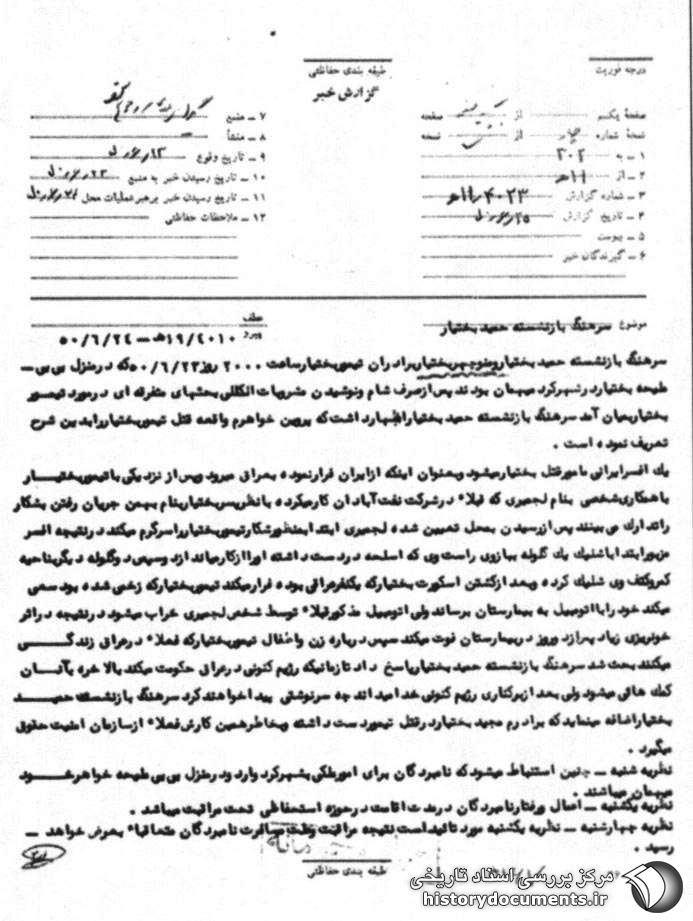 درجه فوریت
طبقه بندی حفاظتی
گزارش خبر
صفحه یکم از صفحه
نسخه شماره از نسخه
۱ – به ۳۰۲
۲ – از ۱۱ ه‍
۳ – شماره گزارش
۴ – تاریخ گزارش
۵ – پیوست
۶ – گیرندگان خبر
۷ – منبع
۸ – منشأ
۹ – تاریخ وقوع
۱۰ – تاریخ رسیدن خبر به منبع
۱۱ – تاریخ رسیدن خبر برهبر عملیات محل
۱۲ – ملاحظات حفاظتی
موضوع سرهنگ بازنشسته حمید بختیار
عطف
پیرو ۱۹/۴۰۱۰ه‍ – ۵۰/۶/۲۴
سرهنگ بازنشسته حمید بختیار ومنوچهربختیاربرادران تیموربختیارساعت ۲۰۰۰ روز ۵۰/۶/۲۳که درمنزل بی بی –
طیحه بختیاردرشهرکرد میهمان بودند پس ازصرف شام ونوشیدن مشروبات الکلی بحثهای متفرقه ای درمورد تیمسور
بختیاربمیان آمد سرهنگ بازنشسته حمید بختیاراظهارداشت که پروین خواهرم واقعه قتل تیموربختیاررابدین شرح
تعریف نموده است .
یک افسرایرانی مامورقتل بختیارمیشود وبعنوان اینکه ازایران فرارنموده بعراق میرود وپس از نزدیکی باتیموربختیـــار
باهمکاری شخصی بنام لجمیری که قبلا" درشرکت نفت آبادان کارمیکرده بانظررئیس بختیاربنام بهمن جریان رفتن بشکار
راتدارک می بینند پس ازرسیدن بمحل تعیین شده لجمیری ابتدا بمنظورشکارتیموربختیارراسرگرم میکند درنتیجه افسر
مزبورابتدا باشلیک یک گلوله ببازوی راست وی که اسلحه دردست داشته اوراازکارمیاندازد وسپس دوگلوله دیگربناحیه
کمروکتف وی شلیک کرده وبعد ازکشتن اسکورت بختیارکه یکنفرعراقی بوده فرارمیکند تیموربختیارکه زخمی شده بود سعی
میکند خود راباتومبیل به بیمارستان برساند ولی اتومبیل مذکورقبلا" توسط شخص لجمیری خراب میشود درنتیجه دراثر
خونریزی زیاد پس ازدو روز دربیمارستان فوت میکند سپس درباره زن واطفال تیموربختیارکه فعلا" درعراق زندگـــی
میکنند بحث شد سرهنگ بازنشسته حمید بختیارپاسخ داد تازمانیکه رژیم کنونی درعراق حکومت میکند بالاخره بآنــان
کمک هائی میشود ولی بعد ازبرکناری رژیم کنونی خدا میداند چه سرنوشتی پیدا خواهند کرد سرهنگ بازنشسته حمیــد
بختیاراضافه مینماید که برادرم مجید بختیاردرقتل تیموردست داشته وبخاطرهمین کارش فعلا" ازسازمان امنیت حقوق
میگیرد .
نظریه شنبه – چنین استنباط میشود که نامبردگان برای امورملکی بشهرکرد وارد ودرمنزل بی بی طیحه خواهرخـــود
میهمان میباشند .
نظریه یکشنبه – اعمال ورفتارنامبردگان درمدت اقامت درحوزه استحفاظی تحت مراقبت میباشد .
نظریه چهارشنبه – نظریه یکشنبه مورد تائید است نتیجه مراقبت وعلت مسافرت نامبردگان متعاقبا" بعرض خواهد –
رسید .
طبقه بندی حفاظتی
مرکز بررسی اسناد تاریخی
historydocuments.ir